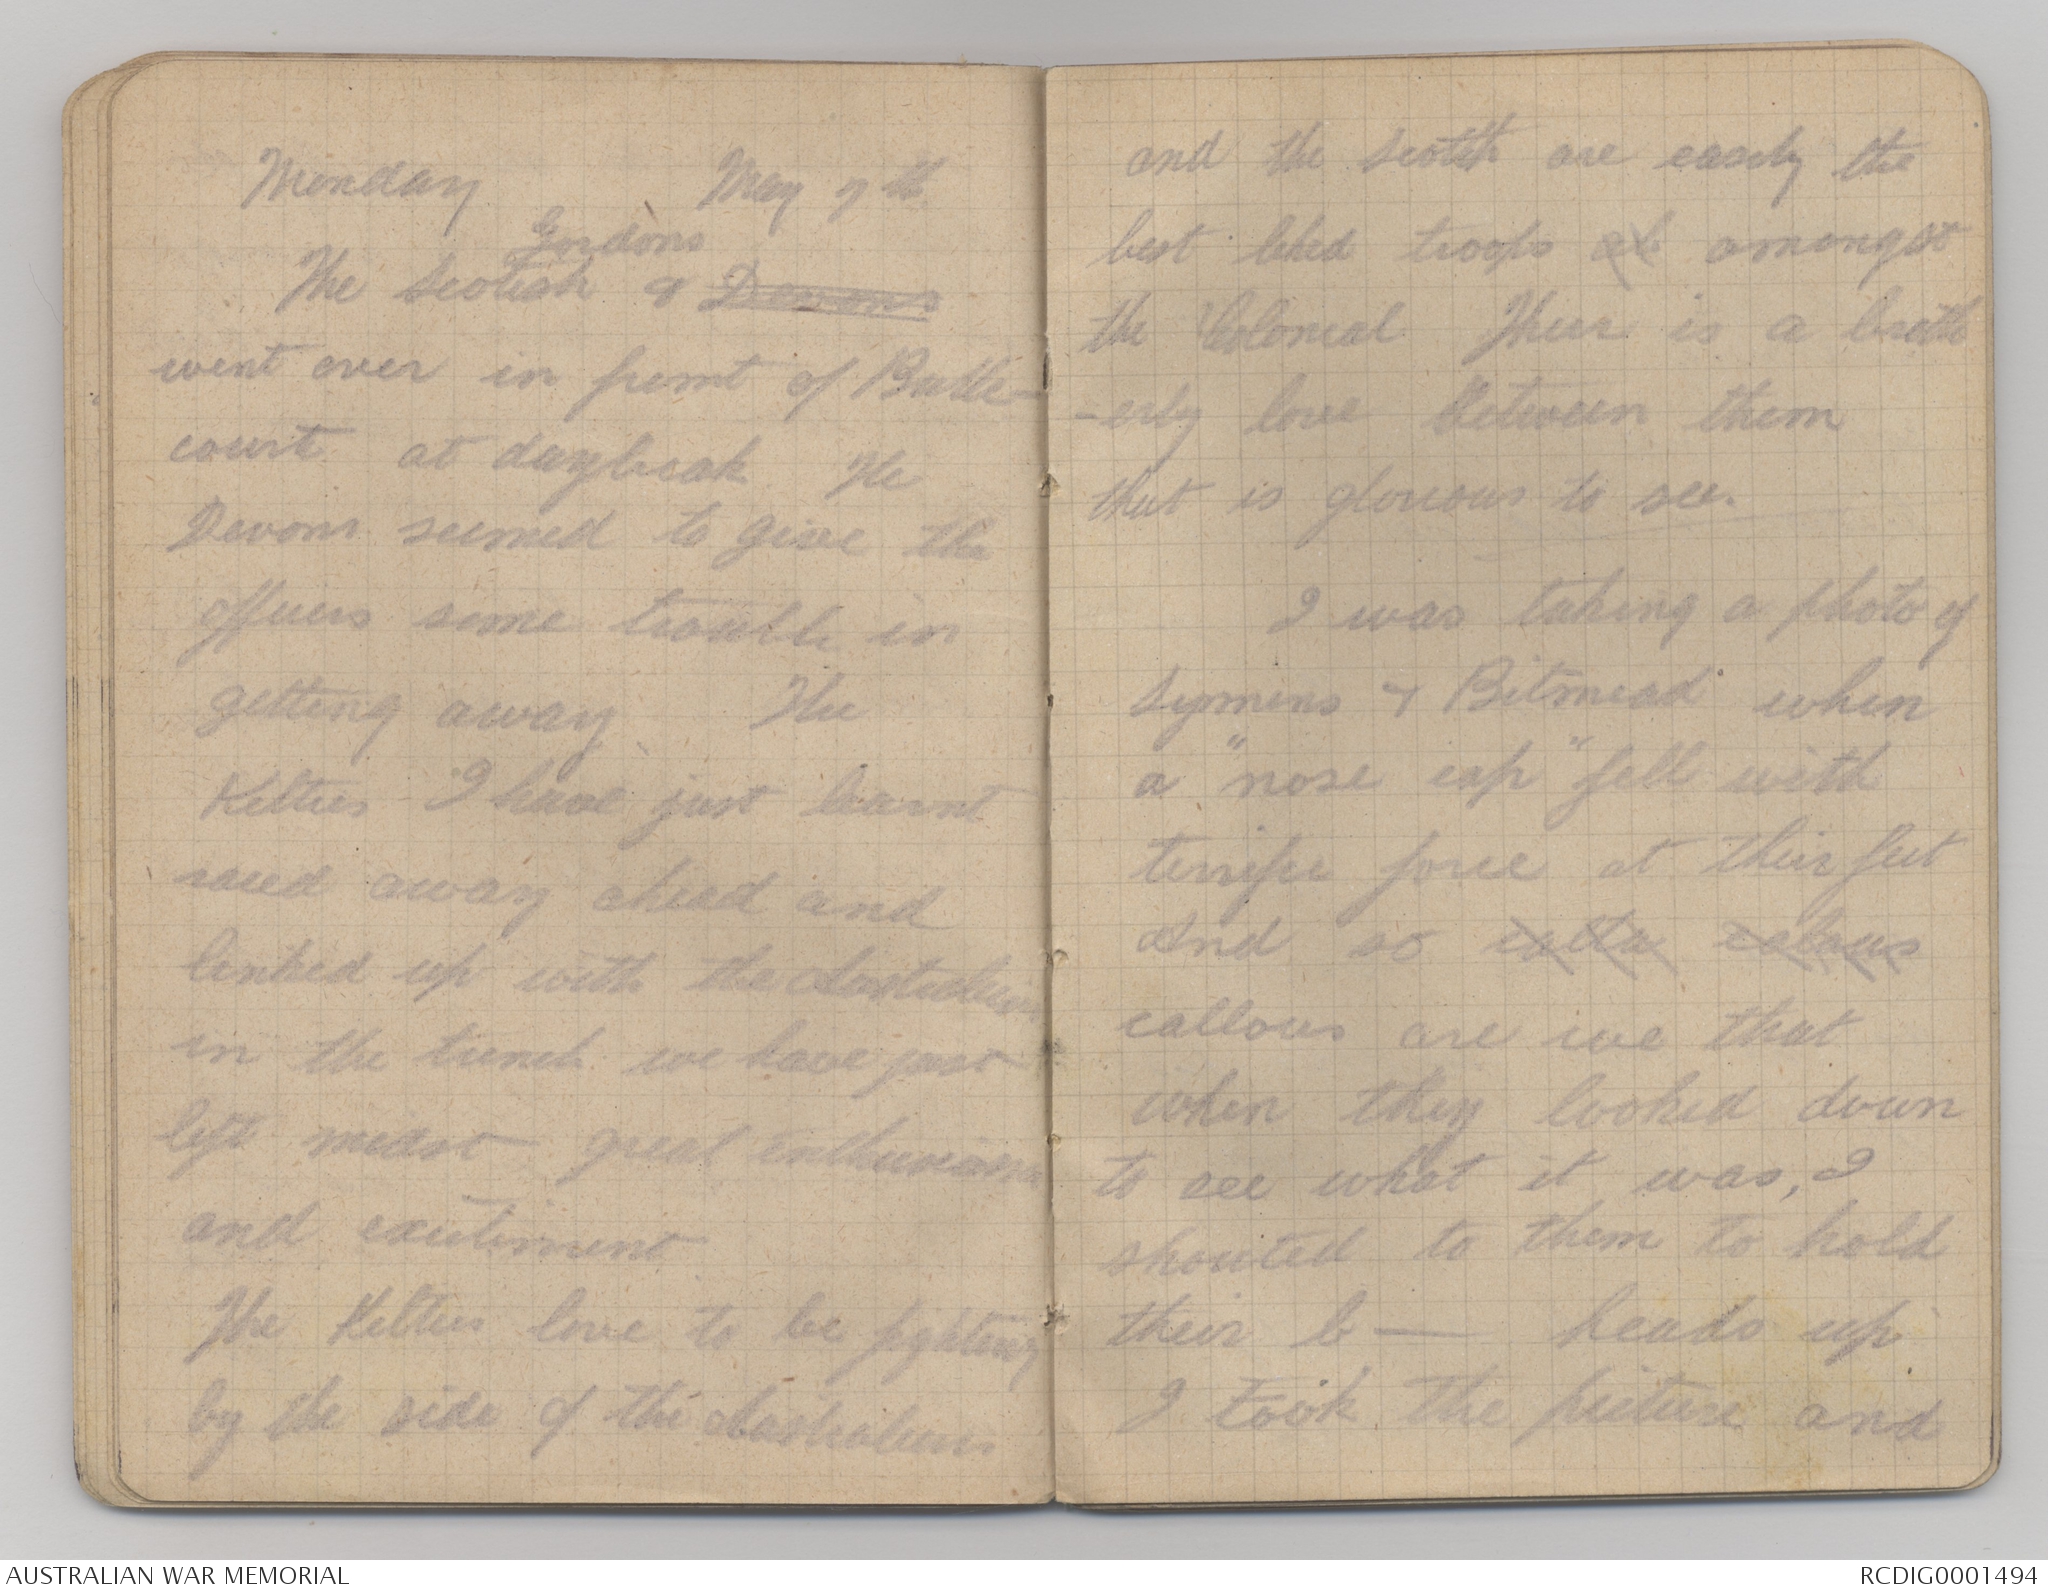 Monday May 7th
Gordons
The Scotish & Devons
went over in fromt of Bulle-
court at daybreak The
Devons seemed to give the
officers some trouble in
getting away The
Kilties I have just learnt
raced away ahead and
linked up with the Australians
in the trench we have just
left midst great enthusiasm
and excitement
The Kilties love to be fighting
by the side of the Australians
and the Scotch are easily the
best liked troops amongst
the Colonial Their is a broth
-erly love between them
that is glorious to see.
I was taking a photo of
Symons & Bitmead when
a "nose cap" fell with
terrific force at their feet
And so calous
callous are we that
when they looked down
to see what it was, I
shouted to them to hold
their b— heads up
I took the picture and
AUSTRALIAN WAR MEMORIAL
RCDIG0001494